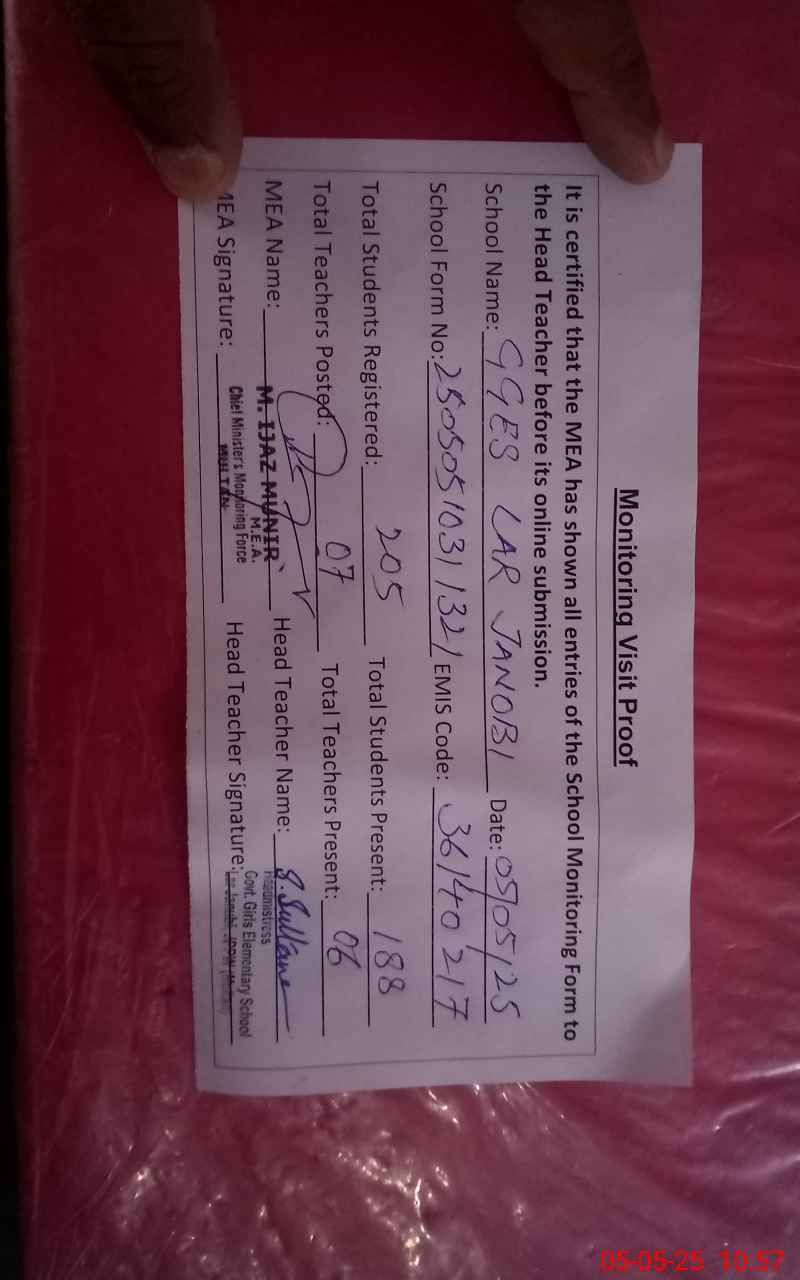 Monitoring Visit Proof
It is certified that the MEA has shown all entries of the School Monitoring Form to
the Head Teacher before its online submission.
School Name: GGES LAR JANOBI Date: 05/05/25
School Form No: 25050510311321 EMIS Code: 36140217
Total Students Registered: 205 Total Students Present: 188
Total Teachers Posted: 07 Total Teachers Present: 06
MEA Name: M. IJAZ MUNIR Head Teacher Name: S. Sultana
M.E.A.
Chief Minister's Monitoring Force
MULTAN
MEA Signature: Head Teacher Signature:
Headmistress
Govt. Girls Elementary School
05-05-25 10:57